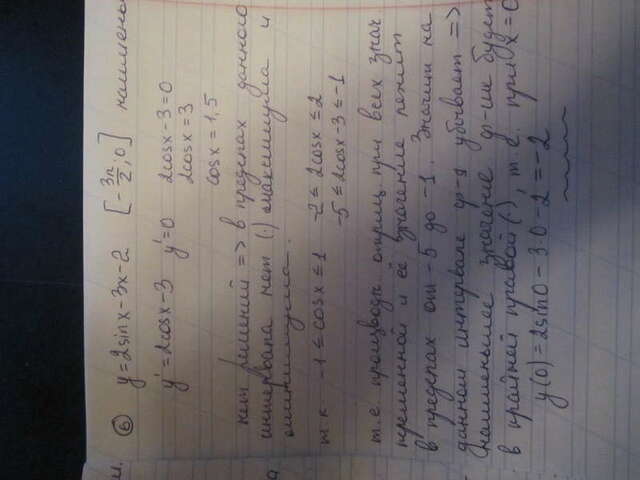 ⑥ y = 2sinx - 3x - 2 [-3π/2; 0] наимень
y' = 2cosx - 3 y' = 0 2cosx - 3 = 0
2cosx = 3
cosx = 1,5
нет решений => в пределах данного
интервала нет (·) максимума и
минимума.
т.к -1 ≤ cosx ≤ 1 -2 ≤ 2cosx ≤ 2
-5 ≤ 2cosx - 3 ≤ -1
т.е. производн отриц при всех знач
переменной и её значение лежит
в пределах от -5 до -1. Значит на
данном интервале ф-я убывает =>
наименьшее значение ф-ии будет
в крайней правой (·), т.е. при x = 0
y(0) = 2sin0 - 3·0 - 2 = -2